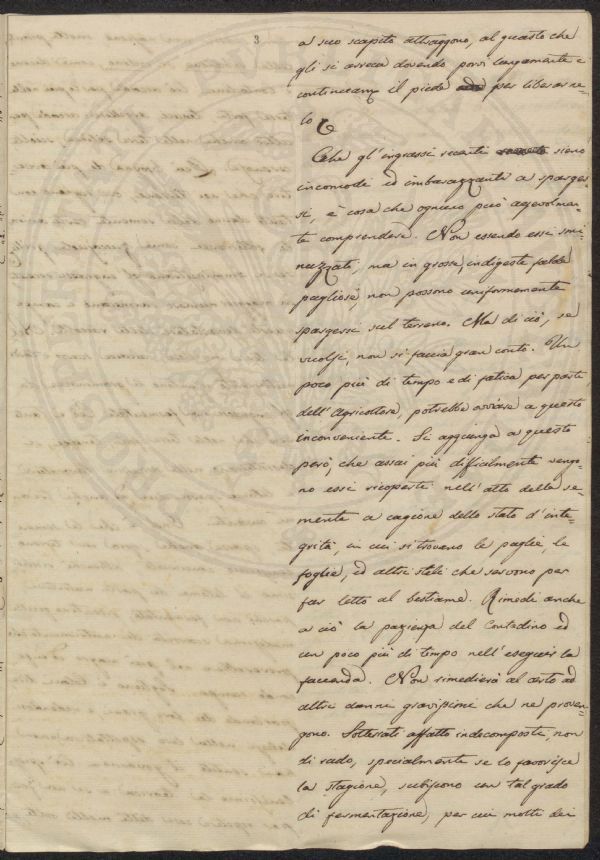 3
a suo scapito attraggono, al guasto che
gli si arreca dovendo porvi largamente e
il piede per liberarne=
lo
Che gl'ingrassi recenti sieno
incomodi ed imbarazzanti a sparger
si, è cosa che ognuno può agevolmen=
te comprendere. Non essendo essi smi=
nuzzati, ma in grosse, indigeste falde
pagliose, non possono uniformemente
spargersi sul terreno. Ma di ciò, se
vuolsi, non si faccia gran conto. Un
poco più di tempo e di fatica per parte
dell'Agricoltore, potrebbe ovviare a questo
inconveniente. Si aggiunga a questo
però, che assai più difficilmente vengo=
no essi ricoperti nell'atto della se=
menta a cagione dello stato d'inte=
grità, in cui si trovano le paglie, le
foglie, ed altri steli che servono per
far letto al bestiame. Rimedi anche
a ciò la pazienza del Contadino ed
un poco più di tempo nell'eseguir la
faccenda. Non rimedierà al certo ad
altri danni gravissimi che ne proven=
gono. Sotterrati affatto indecomposti, non
di rado, specialmente se lo favorisce
la stagione, subiscono un tal grado
di fermentazione, per cui molti dei